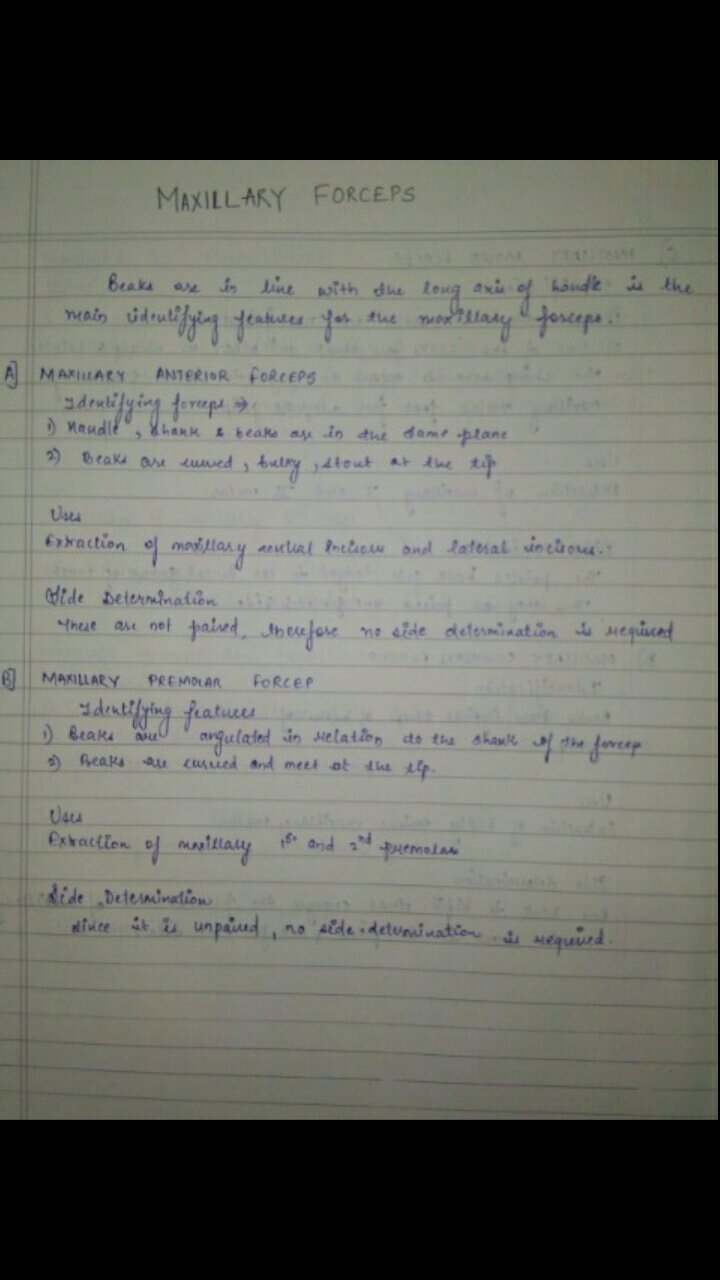 MAXILLARY FORCEPS
Beaks are in line with the long axis of handle is the
main identifying features for the maxillary forceps.
A] MAXILLARY ANTERIOR FORCEPS
Identifying forceps →
1) Handle, shank & beaks are in the same plane
2) Beaks are curved, bulky, stout at the tip
Uses
Extraction of maxillary central incisors and lateral incisors.
Side Determination
These are not paired, therefore no side determination is required
B] MAXILLARY PREMOLAR FORCEP
Identifying features
1) Beaks are angulated in relation to the shank of the forcep
2) Beaks are curved and meet at the tip.
Uses
Extraction of maxillary 1st and 2nd premolar
Side Determination
Since it is unpaired, no side determination is required.